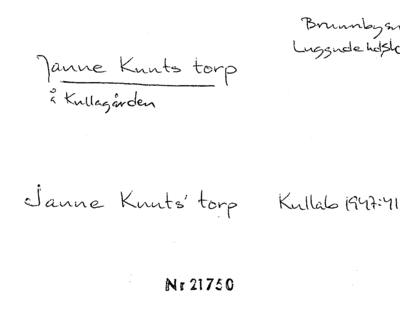 Brunnby sn
Luggude hd
Janne Knuts torp
å Kullagården
Janne Knuts' torp Kullab 1947:41
Nr 21750